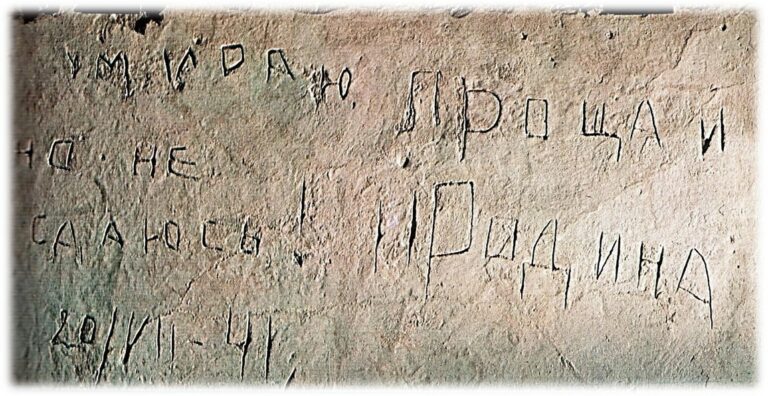 УМИРАЮ
НО НЕ
СДАЮСЬ!
20/VII-41
ПРОЩАИ
РОДИНА